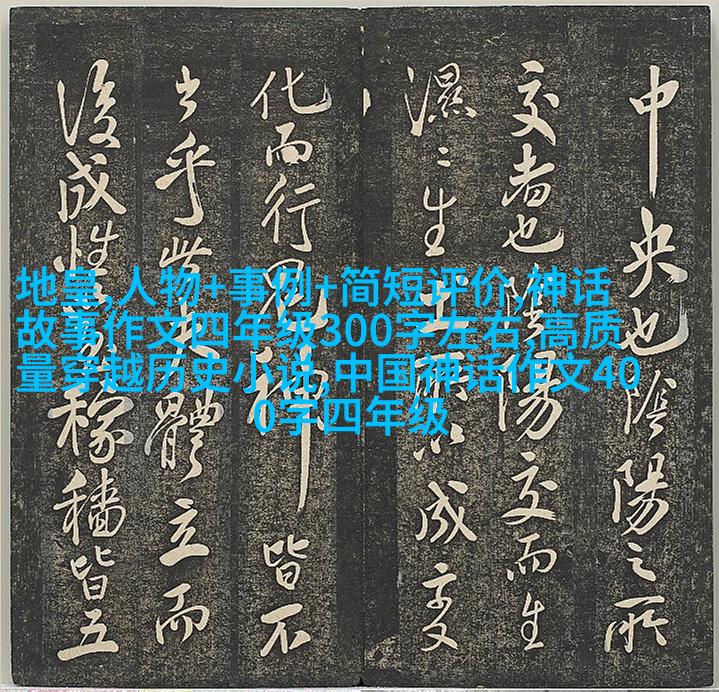 中央也陰陽之所
交者也陰陽交而生
濕〻生土以成变
化而行鬼神皆不
乎此體立而
後成性稼穡皆五
地皇,人物+事例+简短评价,神话
故事作文四年级300字左右,高质
量穿越历史小说,中国神话作文40
0字四年级